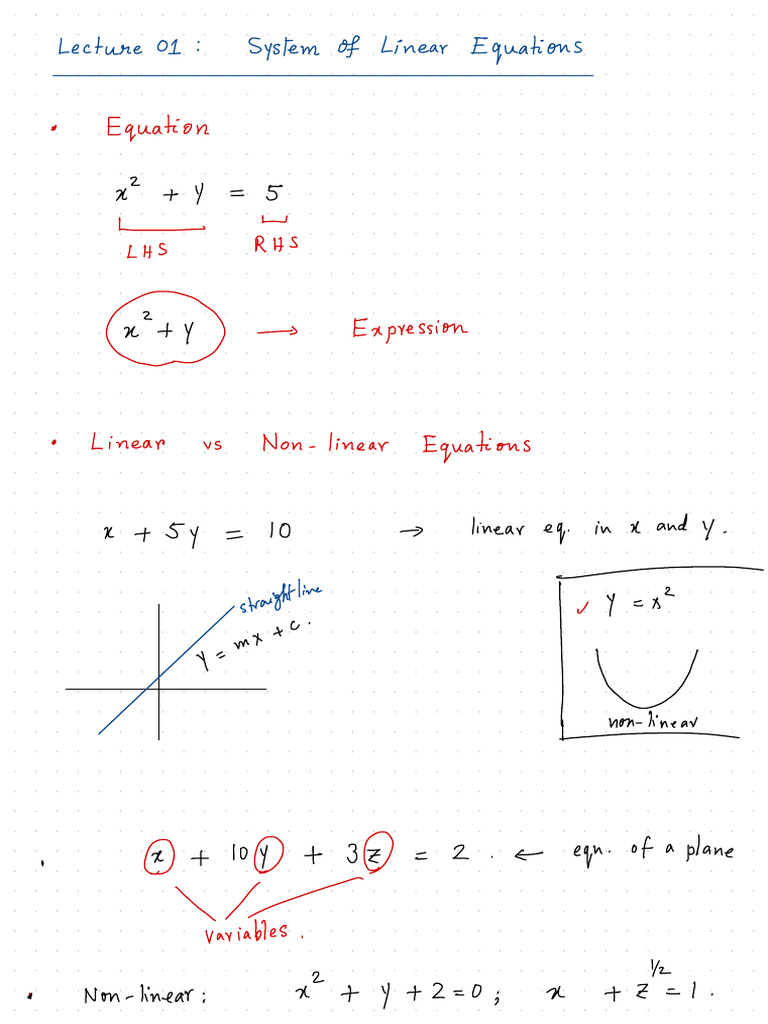 Lecture 01 : System of Linear Equations
• Equation
x² + y = 5
LHS RHS
x² + y → Expression
• Linear vs Non-linear Equations
x + 5y = 10 → linear eq. in x and y.
straight line
y = mx + c.
✓ y = x²
non-linear
• x + 10y + 3z = 2 . ← eqn. of a plane
variables.
• Non-linear: x² + y + 2 = 0 ; x + z^1/2 = 1 .